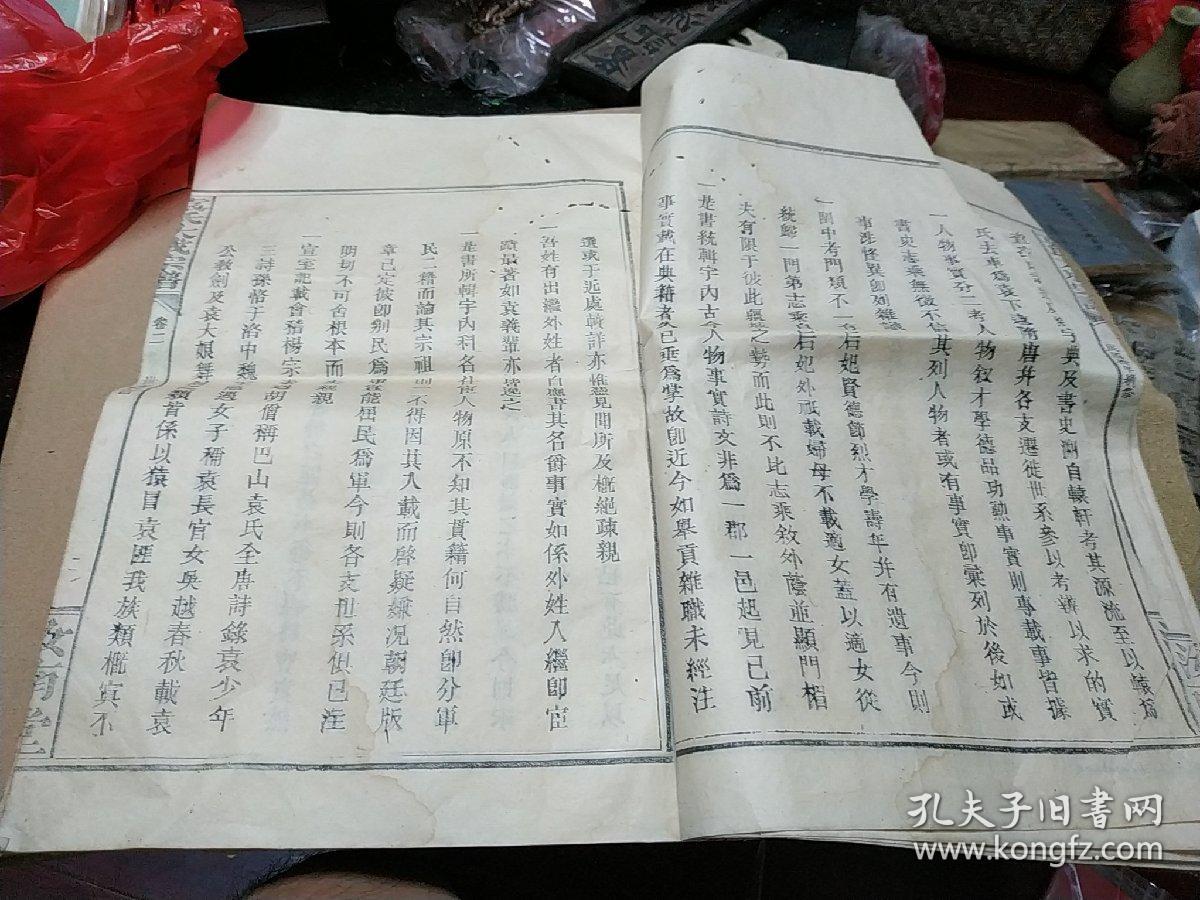 字典及書史溯自轅軒者其源流至以轅爲
氏去車爲袁下逮隋唐幷各支遷徙世系參以考辨以求的實
一人物事實分二考人物叙才學德品功勳事實則專載事皆據
書史志乘無徵不信其列人物者或有事實卽彙列於後如或
事涉怪異卽列雜
一閨中考門類不一后妃賢德節烈才學壽年幷有遺事今則
統歸一門第志乘后妃外祇載婦母不載適女蓋以適女從
夫有限于彼此之勢而此則不比志乘敘外蔭並顯門楣
一是書統輯宇內古今人物事實詩文非爲一郡一邑起見已前
事實載在典籍者久已垂爲學故卽近今如舉貢雜職未經注
選或于近處轉詳亦惟聞所及槪絕疎親
一吾姓有出繼外姓者自應書其名爵事實如係外姓入繼卽宦
蹟最著如袁義輩亦
一是書所輯宇內科名人物原不知其貫籍何自然卽分軍
民二籍而論其宗祖則不得因其入載而啓疑嫌況朝廷版
章已定彼卽削民爲能屈民爲軍今則各支世系俱已注
明切不可舍根本而親
一宣室記載會稽楊宗胡僧稱巴山袁氏全唐詩錄袁少年
三詩孫恪于洛中魏遇女子稱袁長官女吳越春秋載袁
公教劍及袁大娘舞類皆係以猿目袁匪我族類槪寘不
卷二
孔夫子旧书网
www.kongfz.com